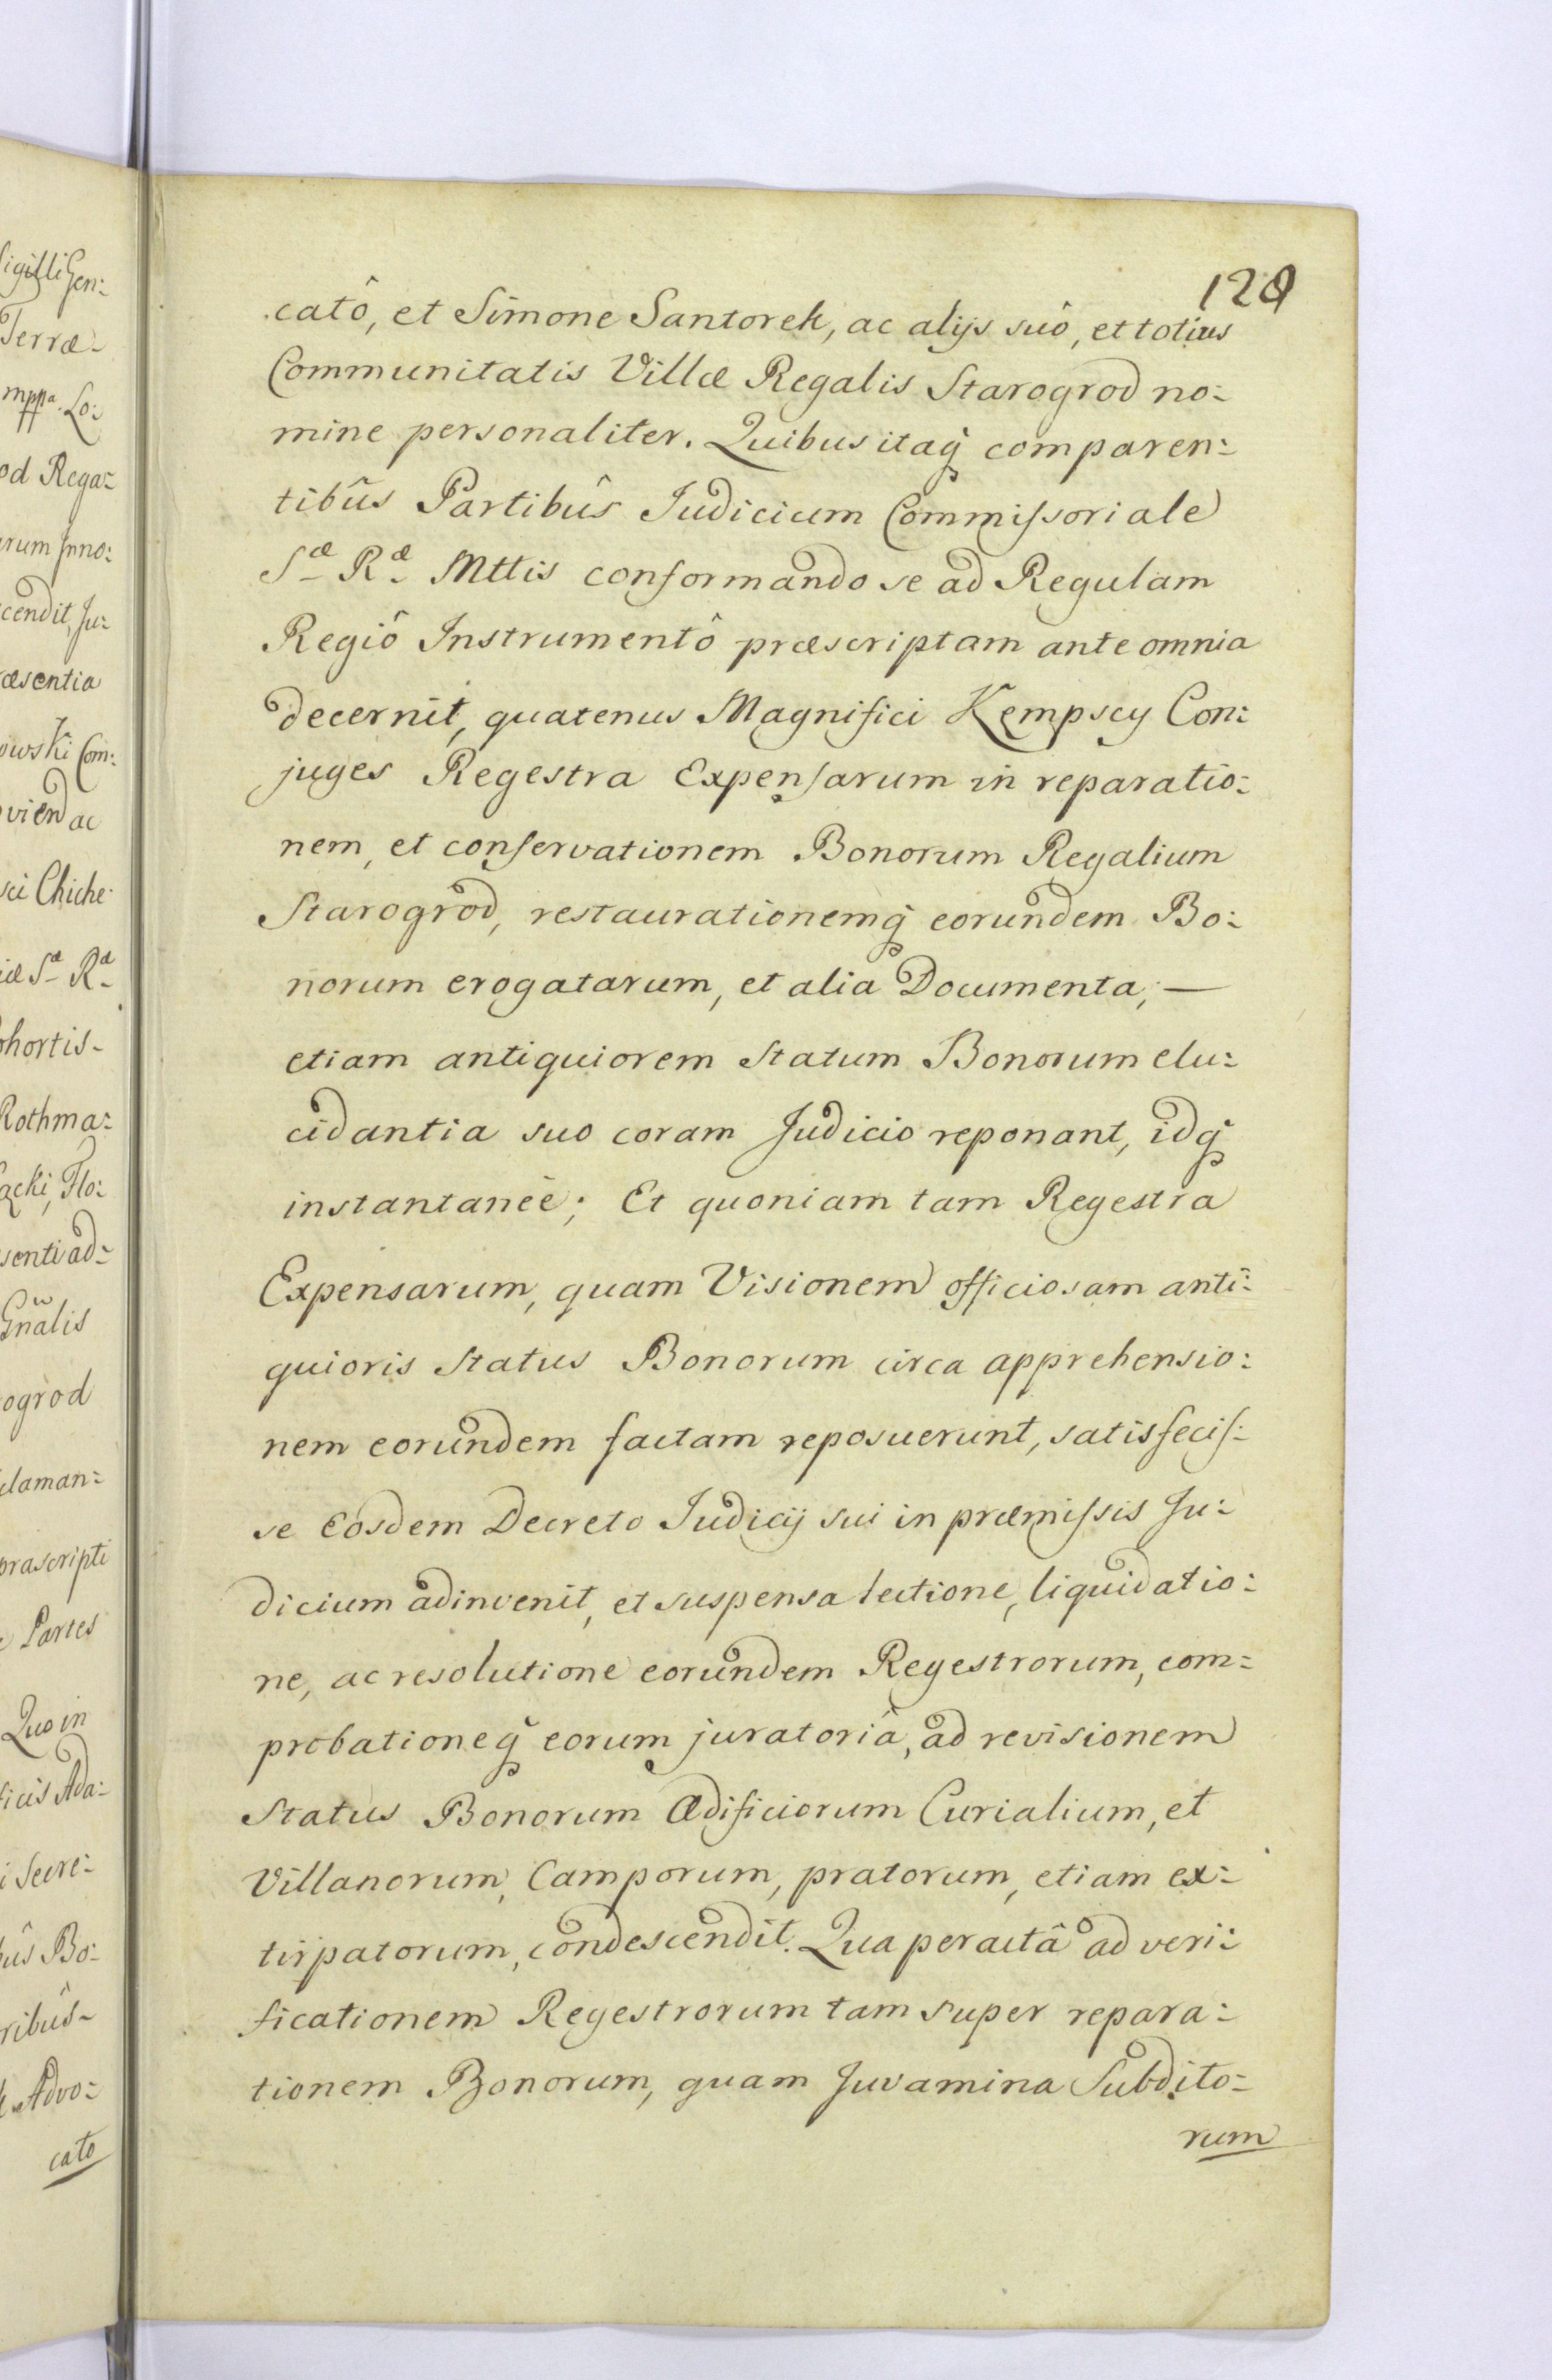 igilli Gen:
Terræ-
mppa. Lo:
od Rega:
arum Inno:
cendit, Ju:
æsentia
owski Com:
vien ac
sci Chiche
iæ Sæ Ræ
ohortis-
Rothma:
acki, Flo:
senti ad:
Gnalis
ogrod
claman:
præscripti
Partes
Quo in
ficis Ada:
i Secre:
bûs Bo:
ribûs-
k Advo:
cato
129
catô, et Simone Santorek, ac alijs suô, et totius
Communitatis Villæ Regalis Starogrod no:
mine personaliter. Quibus itaq̃ comparen:
tibûs Partibûs Iudicium Commissoriale
Sæ Ræ Mttis conformando se ad Regulam
Regiô Instrumentô præscriptam ante omnia
decernit, quatenus Magnifici Kempscy Con:
juges Regestra Expensarum in reparatio:
nem, et conservationem Bonorum Regalium
Starogrod, restaurationemq̃ eorundem Bo:
norum erogatarum, et alia Documenta, —
etiam antiquiorem Statum Bonorum elu:
cidantia suo coram Judicio reponant, idq̃
instantaneè; Et quoniam tam Regestra
Expensarum, quam Visionem officiosam anti:
quioris Status Bonorum circa apprehensio:
nem eorundem factam reposuerunt, satisfecis:
se Eosdem Decreto Iudicij sui in præmissis Ju:
dicium adinvenit, et suspensa lectione, liquidatio:
ne, ac resolutione eorundem Regestrorum, com:
probationeq̃ eorum juratoriâ, ad revisionem
Status Bonorum Ædificiorum Curialium, et
Villanorum, Camporum, pratorum, etiam ex:
tirpatorum, condescendit. Qua peractâ ad veri:
ficationem Regestrorum tam super repara:
tionem Bonorum, quam Juvamina Subdito:
rum